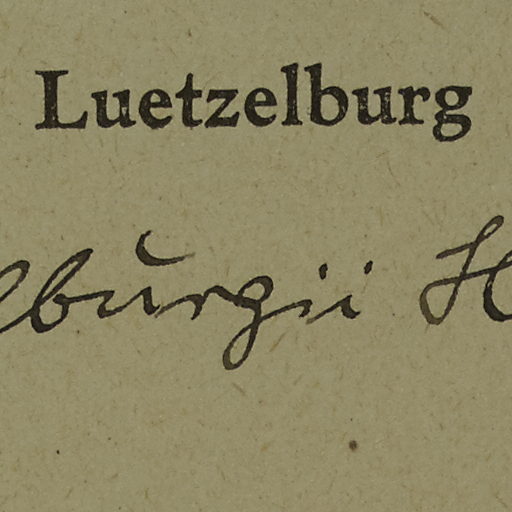 Luetzelburg
lbŭrgii H